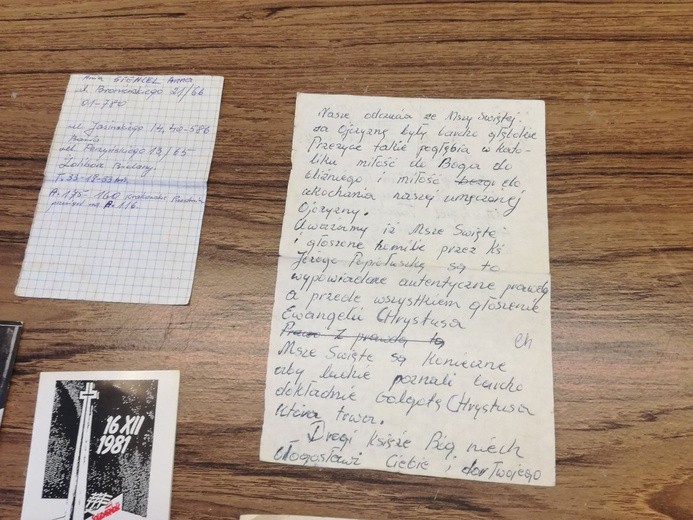 STENCEL Anna
ul. Broniewskiego 21/66
01-780
ul. Jasińskiego 14, 40-586
ul. 13/65
Żoliborz Bielany
A. 175- 160
A. 116
Nasze odczucia ze Mszy Świętej
za Ojczyznę były bardzo głębokie
Przeżycie takie pogłębia w kato-
liku miłość do Boga do
bliźniego i miłość do
ukochania naszej umęczonej
Ojczyzny.
Uważamy iż Msze Święte
i głoszone homilie przez Ks
Jerzego Popiełuszkę są to
wypowiadane autentyczne prawdy
a przede wszystkiem głoszenie
Ewangelii Chrystusa
ch
Msze Święte są konieczne
aby ludzie poznali bardzo
dokładnie Golgotę Chrystusa
która trwa.
Drogi Księże Bóg niech
błogosławi Ciebie i dar Twojego
16 XII
1981